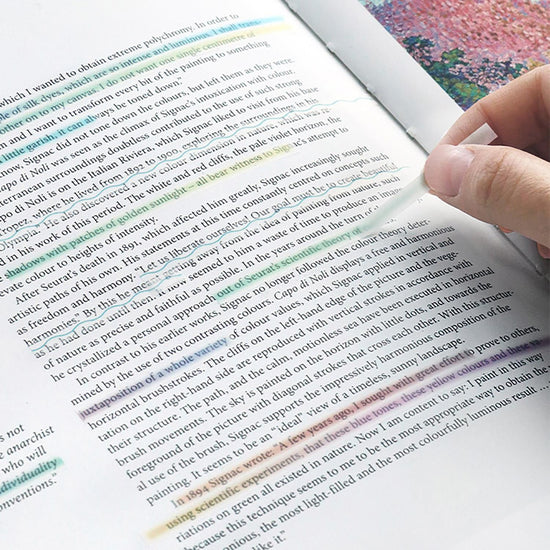 which I wanted to obtain extreme polychromy. In order to
of silk dyes, which are so intense and luminous, I shall trans-
other on to my canvas I do not want one single centimetre of
and I want to transform every bit of the painting to something
little garish, it can always be toned down."
Signac did not tone down the colours, but left them as they were
Capo di Noli was seen as the climax of Signac's intoxication with colour.
terranean surroundings doubtless contributed to the use of such strong
Capo di Noli is on the Italian Riviera, which Signac liked to visit from his base
Tropez, where he lived from 1892 to 1930, exploring the surroundings in
"Olympia." He also discovered a new colour dimension in nature, which
in his work of this period. The white and red cliffs, the pale violet horizon, the
shadows with patches of golden sunlight – all bear witness to Signac's attempt to
colour to heights of intensity.
After Seurat's death in 1891, which affected him greatly, Signac increasingly sought
artistic paths of his own. His statements at this time constantly centred on concepts such
as freedom and harmony. "Let us liberate ourselves! Our goal must be to create beautiful
harmonies." By this he was moving away from the idea of painting from nature, such
as he had done until then. It now seemed to him a waste of time to produce an image
of nature as precise and faithful as possible. In the years around the turn of the
he crystallized a personal approach out of Seurat's scientific theory of
In contrast to his earlier works, Signac no longer followed the colour theory deter-
mined by the use of two contrasting colours. Capo di Noli displays a free and harmonious
juxtaposition of a whole variety of colour values, which Signac applied in vertical and
horizontal brushstrokes. The cliffs on the left-hand edge of the picture and the vege-
tation on the right-hand side are reproduced with vertical strokes in accordance with
their structure. The path, and the calm, motionless sea have been executed in horizontal
brush movements. The sky is painted on the horizon with little dots, and towards the
foreground of the picture with diagonal strokes that cross each other. With this structur-
al use of the brush, Signac supports the impressively harmonious composition of the
painting. It seems to be an "ideal" view of a timeless, sunny landscape.
In 1894 Signac wrote: "A few years ago, I sought with great effort to prove to others,
using scientific experiments, that these blue tones, these yellow colours and these
riations on green all existed in nature. Now I am content to say: I paint in this way
because this technique seems to me to be the most appropriate way to obtain the
the most light-filled and the most colourfully luminous result
like it."
's not
e anarchist
who will
dividuality
onventions."